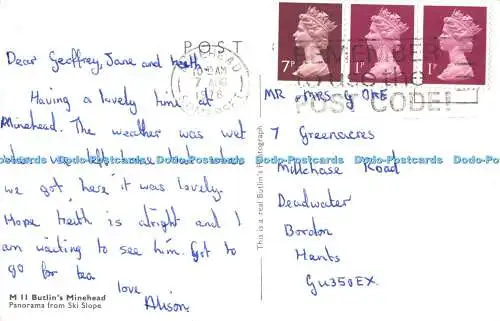 POST
Dear Geoffrey, Jane and Keith
Having a lovely time at
Minehead. The weather was wet
when we left home but when
we got here it was lovely.
Hope Keith is alright and I
am waiting to see him. Got to
go for tea
love
Alison.
M 11 Butlin's Minehead
Panorama from Ski Slope
This is a real Butlin's Photograph
MINEHEAD
10-AM
7 AUG
1978
SOMERSET
REMEMBER
TO USE THE
POST CODE!
7P
1P
1P
MR & MRS G OKE
7 Greenacres
Millchase Road
Deadwater
Bordon
Hants
GU350EX.
Dodo-Postcards Dodo-Postcards Dodo-Postcards Dodo-Postcards